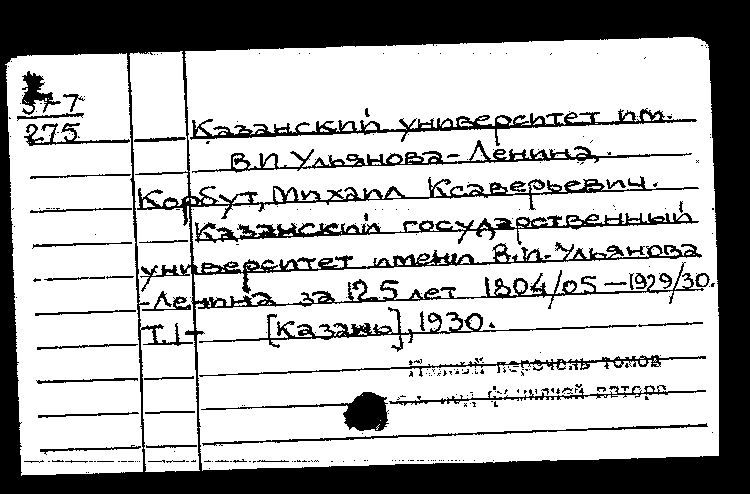 57-7
275
Казанский университет им.
В.И. Ульянова-Ленина.
Корбут, Михаил Ксаверьевич.
Казанский государственный
университет имени В.И. Ульянова
-Ленина за 125 лет 1804/05-1929/30.
Т.1- [Казань], 1930.
Полный перечень томов
см. под фамилией автора